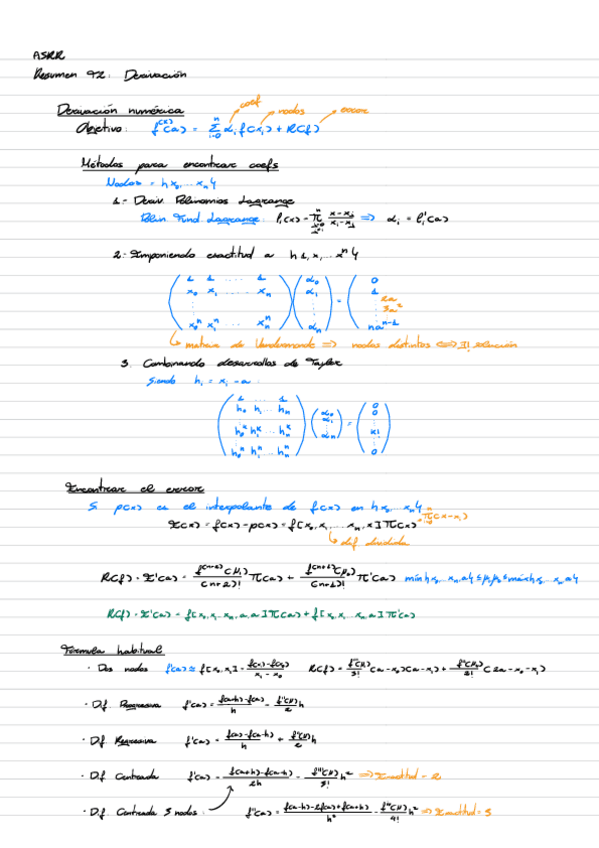 ASRR
Resumen T2: Derivación
Derivación numérica
coef nodos error
Objetivo: f^(k)(a) = Σ_{i=0}^{n} α_i f(x_i) + R(f)
Métodos para encontrar coefs
Nodos = {x_0, ... x_n}
1.- Deriv. Polinomios Lagrange
Polin. Fund. Lagrange: l_i(x) = Π_{j=0, j≠i}^{n} (x - x_j)/(x_i - x_j) ⇒ α_i = l_i'(a)
2.- Imponiendo exactitud a {1, x, ... x^n}
( 1 1 ... 1 ) ( α_0 ) = ( 0 )
( x_0 x_1 ... x_n ) ( α_1 ) ( 1 )
2a
3a²
( x_0^n x_1^n ... x_n^n ) ( α_n ) ( na^{n-1} )
↳ matriz de Vandermonde ⇒ nodos distintos ⇔ ∃! solución
3. Combinando desarrollos de Taylor
Siendo h_i = x_i - a:
( 1 ... 1 )
( h_0 h_1 ... h_n ) ( α_0 ) = ( 0 )
( α_1 ) ( 0 )
( h_0^k h_1^k ... h_n^k ) ( α_n ) ( k! )
( h_0^n h_1^n ... h_n^n ) ( 0 )
Encontrar el error
Si p(x) es el interpolante de f(x) en {x_0, ... x_n}
E(x) = f(x) - p(x) = f[x_0, x_1, ..., x_n, x] Π(x) Π_{i=0}^{n} (x - x_i)
↳ dif. dividida
R(f) = E'(a) = f^(n+2)(μ_1)/(n+2)! Π(a) + f^(n+1)(μ_2)/(n+1)! Π'(a) min{x_0, ... x_n, a} ≤ μ_1, μ_2 ≤ máx{x_0, ... x_n, a}
R(f) = E'(a) = f[x_0, x_1, ... x_n, a, a] Π(a) + f[x_0, x_1, ... x_n, a] Π'(a)
Formula habitual
· Dos nodos f'(a) ≈ f[x_0, x_1] = (f(x_1) - f(x_0))/(x_1 - x_0) R(f) = f'''(μ_1)/3! (a - x_0)(a - x_1) + f''(μ_2)/2! (2a - x_0 - x_1)
· Dif. Progresiva f'(a) = (f(a+h) - f(a))/h - f''(μ)/2 h
· Dif. Regresiva f'(a) = (f(a) - f(a-h))/h + f''(μ)/2 h
· Dif. Centrada f'(a) = (f(a+h) - f(a-h))/2h - f'''(μ)/3! h² ⇒ Exactitud = 2
· Dif. Centrada 3 nodos: f''(a) = (f(a-h) - 2f(a) + f(a+h))/h² - f''(μ)/4! h² ⇒ Exactitud = 3